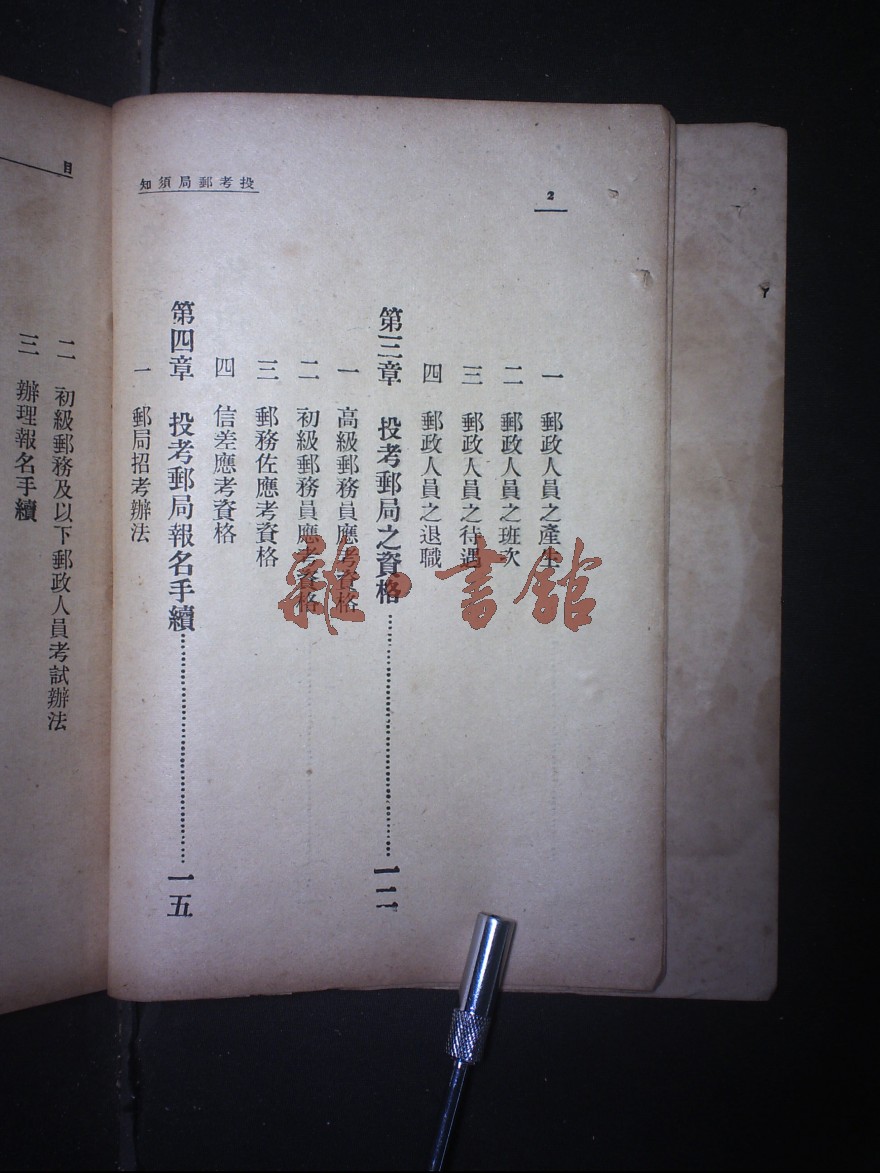 2
投考郵局須知
一 郵政人員之產生
二 郵政人員之班次
三 郵政人員之待遇
四 郵政人員之退職
第三章 投考郵局之資格……………………一二
一 高級郵務員應考資格
二 初級郵務員應考資格
三 郵務佐應考資格
四 信差應考資格
第四章 投考郵局報名手續……………………一五
一 郵局招考辦法
目
二 初級郵務及以下郵政人員考試辦法
三 辦理報名手續
雜·書館